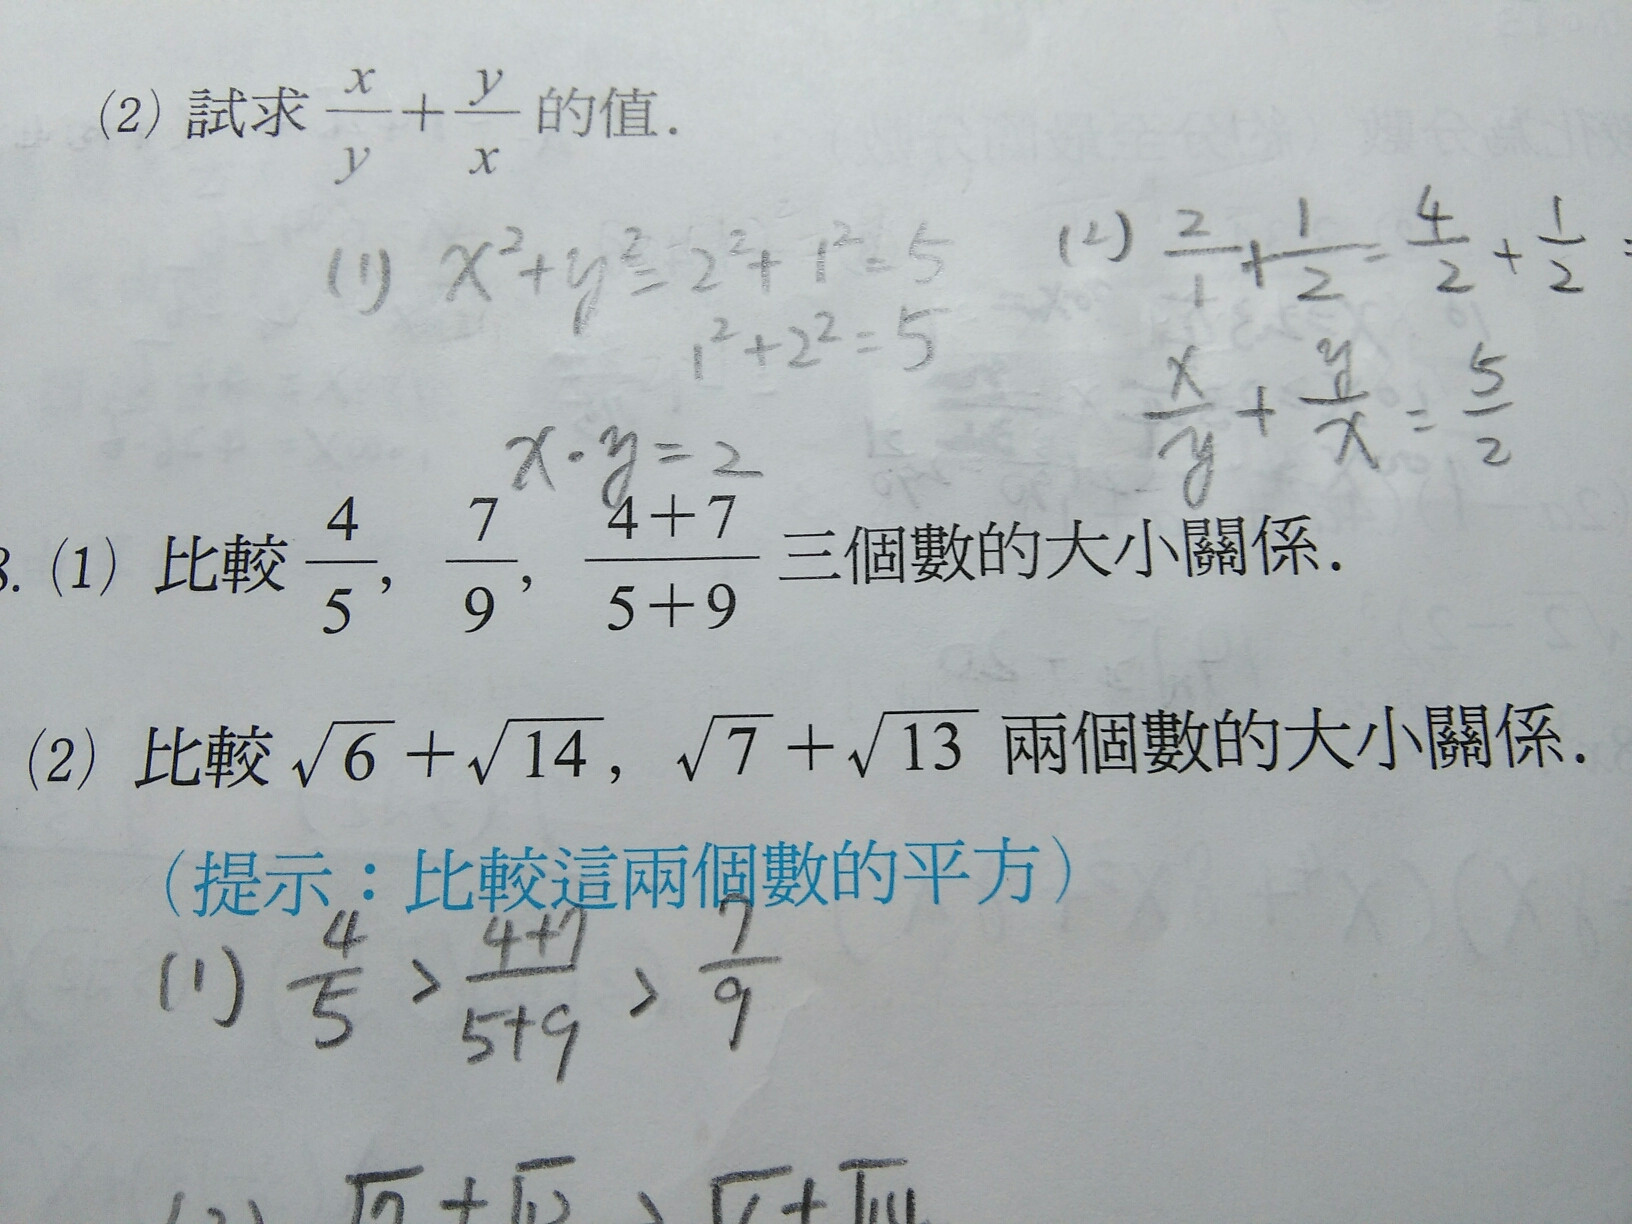 (2) 試求 x/y + y/x 的值.
(1) x²+y²=2²+1²=5
1²+2²=5
x·y=2
(2) 2/1 + 1/2 = 4/2 + 1/2 =
x/y + y/x = 5/2
8. (1) 比較 4/5, 7/9, (4+7)/(5+9) 三個數的大小關係.
(2) 比較 √6+√14, √7+√13 兩個數的大小關係.
(提示：比較這兩個數的平方)
(1) 4/5 > (4+7)/(5+9) > 7/9
(2) √7+√13 > √6+√14